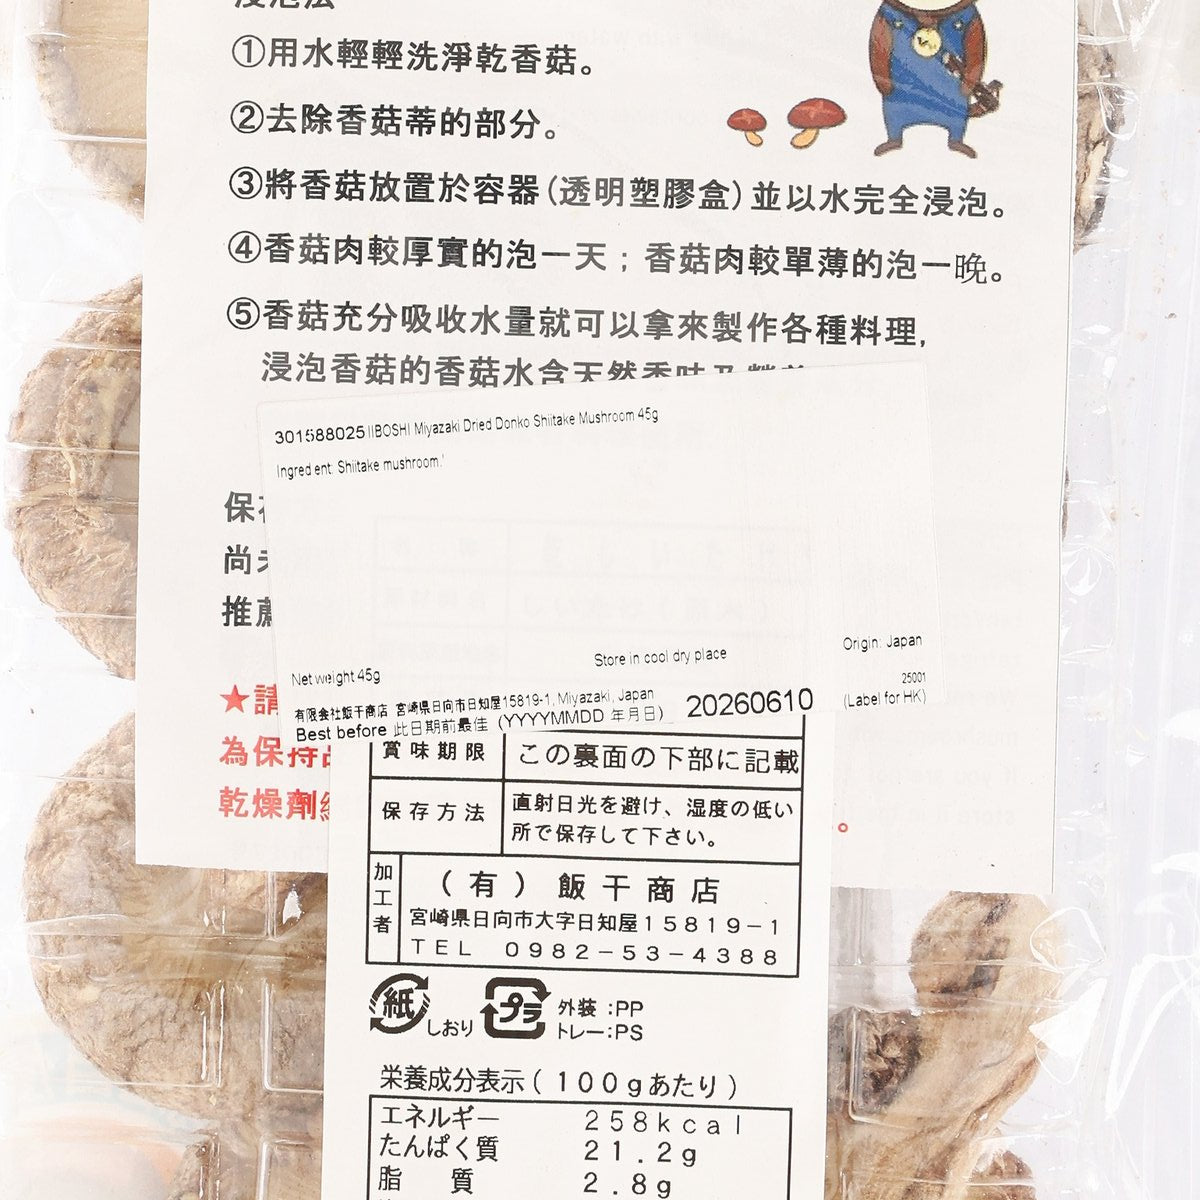 浸泡法
①用水輕輕洗淨乾香菇。
②去除香菇蒂的部分。
③將香菇放置於容器(透明塑膠盒)並以水完全浸泡。
④香菇肉較厚實的泡一天；香菇肉較單薄的泡一晚。
⑤香菇充分吸收水量就可以拿來製作各種料理,
浸泡香菇的香菇水含天然香味及營養
301588025 IIBOSHI Miyazaki Dried Donko Shiitake Mushroom 45g
Ingredient: Shiitake mushroom.
保存
尚未
推薦
Net weight 45g
Store in cool dry place
Origin: Japan
25001
(Label for HK)
有限会社飯干商店 宮崎県日向市日知屋15819-1, Miyazaki, Japan
Best before 此日期前最佳 (YYYYMMDD 年月日) 20260610
★請
為保持品
乾燥劑
賞味期限 この裏面の下部に記載
保存方法 直射日光を避け、湿度の低い
所で保存して下さい。
加工者 (有)飯干商店
宮崎県日向市大字日知屋15819-1
TEL 0982-53-4388
紙 しおり プラ 外装:PP
トレー:PS
栄養成分表示(100gあたり)
エネルギー 258kcal
たんぱく質 21.2g
脂質 2.8g